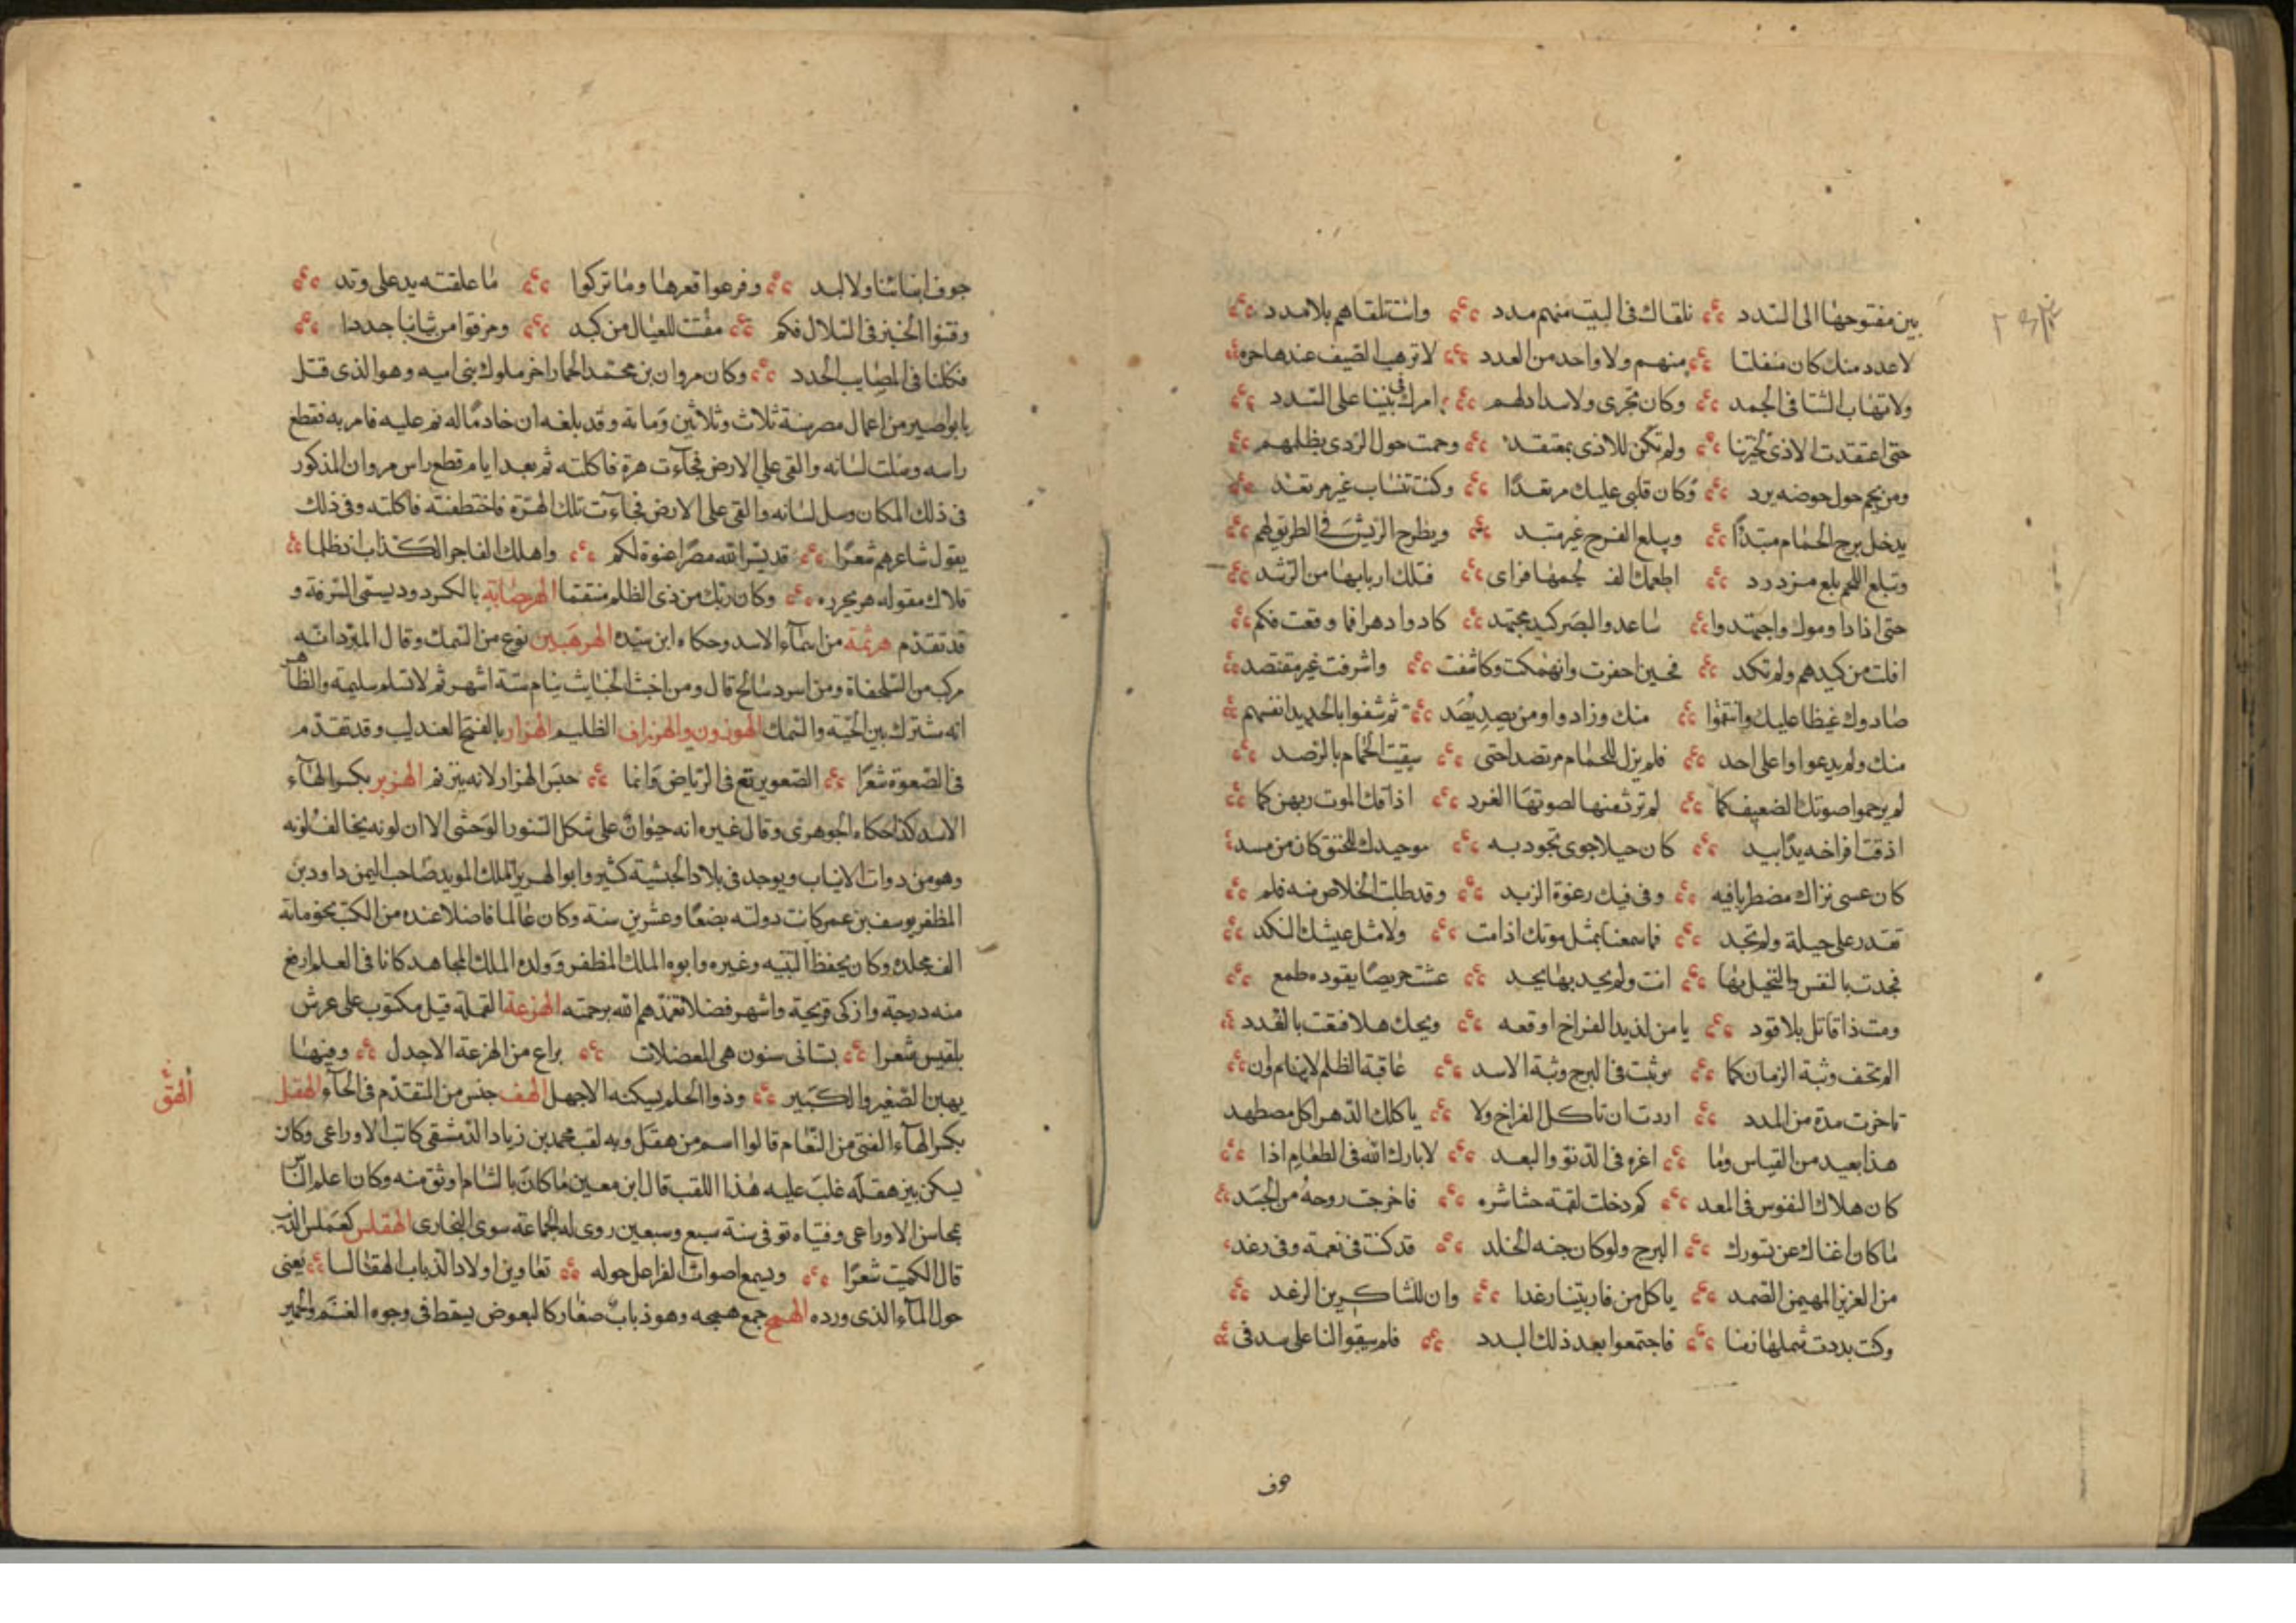 بين مفتوحها الى السدد نلقاك فى البيت منهم مدد وانت تلقاهم بلا مدد
لا عدد منك كان منفلتا منهم ولا واحد من العدد لا ترهب الصيف عند هاجره
ولا تهاب الشتا فى الجمد وكان تجرى ولا سداد لهم امرك فى بيتنا على السدد
حتى اعتقدت الاذى لجيرتنا ولم تكن للاذى بمعتقد وحمت حول الردى بظلمهم
ومن يحم حول حوضه يرد وكان قلبى عليك مرتعدا وكنت تنساب غير مرتعد
يدخل برج الحمام متئدا ويبلع الفرخ غير متئد ويطرح الريش فى الطريق لهم
وتبلع اللحم بلع مزدرد اطعمك الف لحمها فراى قتلك اربابها من الرشد
حتى اذا داوموك واجتهدوا ساعدوا البصر كيد مجتهد كادوا دهرا فما وقعت فكم
افلت من كيدهم ولم تكد فحين احفرت وانهمكت وكاشفت واشرفت غير مقتصد
صادوك غيظا عليك وانتقموا منك وزادوا ومن يصيد يصد ثم شفوا بالحديد انفسهم
منك ولم يدعوا وا على احد فلم يزل للحمام مرتصدا حتى سقيت الحمام بالرصد
لم يرحموا صوتك الضعيف كما لم ترث منها لصوتها الغرد اذاقك الموت ربهن كما
اذقت افراخه يدا بيد كان حبلا حوى بجودبه موجيدك للخنق كان من مسد
كان عسى نراك مضطربا فيه وفى فيك رغوة الزبد وقد طلبت الخلاص منه فلم
تقدر على حيلة ولم تجد فما سمعنا بمثل موتك اذ امت ولا مثل عيشك النكد
فجدت بالنفس والبخيل بها انت ولم يحيد بها يجد عشت حريصا يقوده طمع
ومت ذا قاتل بلا قود يا من لذيذ الفراخ اوقعه ويحك هلا قنعت بالقدد
الم تخف وثبة الزمان كما وثبت فى البرج وثبة الاسد عاقبة الظلم لا تنام وان
تاخرت مدة من المدد اردت ان تاكل الفراخ ولا ياكلك الدهر اكل مضطهد
هذا بعيد من القياس وما اغره فى الدنو والبعد لا بارك الله فى الطعام اذا
كان هلاك النفوس فى المعد كم دخلت لقمة حشا شره فاخرجت روحه من الجسد
ما كان اغناك عن تسورك البرج ولو كان جنه الخلد قد كنت فى نعمة وفى رغد
من العزيز المهيمن الصمد ياكل من فار بيتنا رغدا وان للشاكرين الرغد
وكنت بددت شملها زمنا فاجتمعوا بعد ذلك البدد فلم يبقوا لنا على سبد فى
جوف ابياتنا ولا لبد وفرغوا قعرها وما تركوا ما علقته يد على وتد
وفتوا الخبز فى السلال فكم مفتت للعيال من كبد ومزقوا من ثيابنا جددا
فكلنا فى المصايب الجدد وكان مروان بن محمد الحمار اخر ملوك بنى اميه وهو الذى قتل
بابواصير من اعمال مصر سنة ثلاث وثلاثين وماية وقد بلغه ان خادما له نم عليه فامر به فقطع
راسه وسلت لسانه والقى على الارض فجاءت هرة فاكلته ثم بعد ايام قطع راس مروان المذكور
فى ذلك المكان وسل لسانه والقى على الارض فجاءت تلك الهرة فاختطفته فاكلته وفى ذلك
يقول شاعرهم شعرا قد يسر الله مصرا عنوة لكم واهلك الفاجر الكذاب اذ ظلما
فلاك مقوله هر يجرره وكان ربك من ذى الظلم منتقما الهرصابة بالكسر دود يسمى السرفة و
قد تقدم هرثمة من اسماء الاسد وحكاه ابن سيده الهرهير نوع من السمك وقال المبرد انه
مركب من السلحفاة ومن اسود سالخ قال ومن اخبث الخبايث ينام ستة اشهر ثم لا تسلم سليمة والظاهر
انه مشترك بين الحية والسمك الهوزون والهزراف الظليم الهزار بالفتح العندليب وقد تقدم
فى الصعوة شعرا الصعو يرتع فى الرياض وانما حبس الهزار لانه يترنم الهزبر بكسر الهاء
الاسد كذا حكاه الجوهرى وقال غيره انه حيوان على شكل السنور الوحشى الا ان لونه يخالف لونه
وهو من ذوات الانياب ويوجد فى بلاد الحبشة كثير وابوا الهزبر الملك المويد صاحب اليمن داود بن
المظفر يوسف بن عمر كانت دولته بضعا وعشرين سنة وكان عالما فاضلا عنده من الكتب نحو ماية
الف مجلد وكان يحفظ التنبيه وغيره وابوه الملك المظفر وولده الملك المجاهد كانا فى العلم ارفع
منه درجة وازكى قريحة واشهر فضلا تغمدهم الله برحمته الهزعة القملة قيل مكتوب على عرش
بلقيس شعرا ستاتى سنون هى المعضلات يراع من الهزعة الاجدل وفيها
يهين الصغير الكبير وذوا الحلم يسكنه الاجهل الهف جنس من المتقدم فى الحاء الهقل
الهق
بكسر الهاء الفتى من النعام قالوا اسم من هقل وبه لقب محمد بن زياد الدمشقى كاتب الاوزاعى وكان
يسكن بيروت هقل غلب عليه هذا اللقب قال ابن معين ما كان بالشام اوثق منه وكان اعلم الناس
بمجالس الاوزاعى وفتياه توفى سنة تسع وسبعين روى له الجماعة سوى البخارى الهقلس كعملس الذيب
قال الكميت شعرا ويسمع اصوات الفراعل حوله تعاوين اولاد الذياب الهقالسا يعنى
حول الماء الذى ورده الهمج جمع همجه وهو ذباب صغار كالبعوض يسقط فى وجوه الغنم والحمير